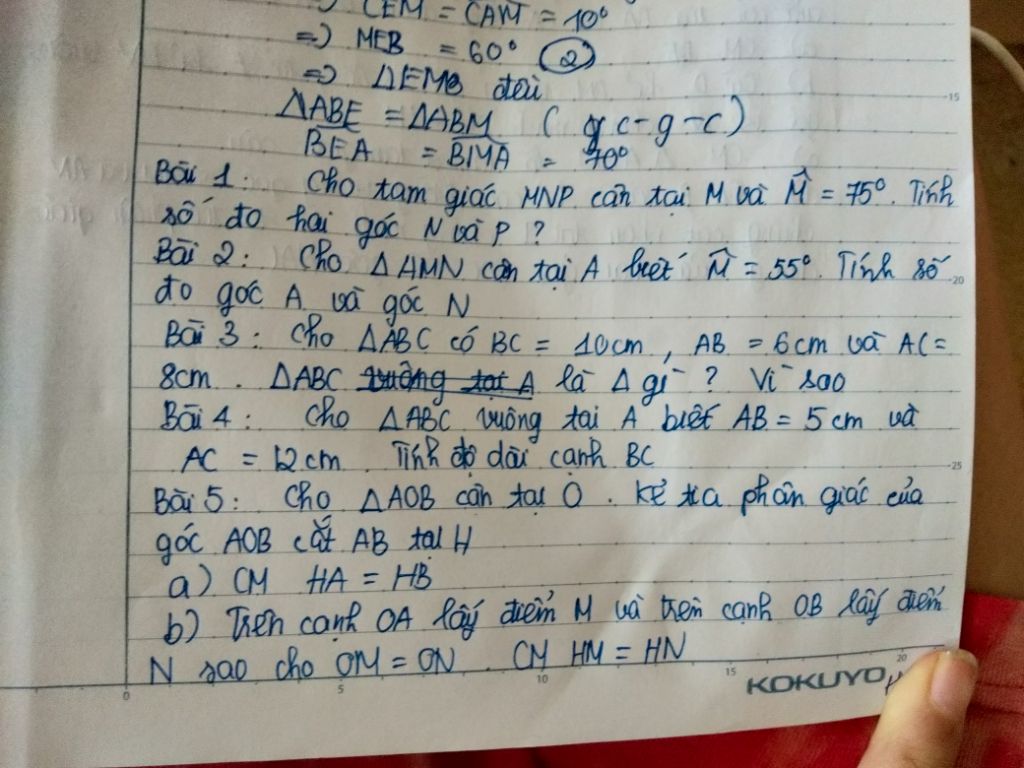 =) CEM = CAM = 10°
=) MEB = 60° (2)
=) ΔEMB đều
ΔABE = ΔABM ( c-g-c)
BEA = BMA = 70°
Bài 1: Cho tam giác MNP cân tại M và M̂ = 75°. Tính
số đo hai góc N và P ?
Bài 2: Cho ΔAMN cân tại A biết M̂ = 55°. Tính số
đo góc A và góc N
Bài 3: Cho ΔABC có BC = 10cm, AB = 6cm và AC =
8cm. ΔABC vuông tại A là Δ gì ? Vì sao
Bài 4: Cho ΔABC vuông tại A biết AB = 5cm và
AC = 12cm. Tính độ dài cạnh BC
Bài 5: Cho ΔAOB cân tại O. Kẻ tia phân giác của
góc AOB cắt AB tại H
a) CM HA = HB
b) Trên cạnh OA lấy điểm M và trên cạnh OB lấy điểm
N sao cho OM = ON. CM HM = HN
0 5 10 15 20
KOKUYO
15
20
25